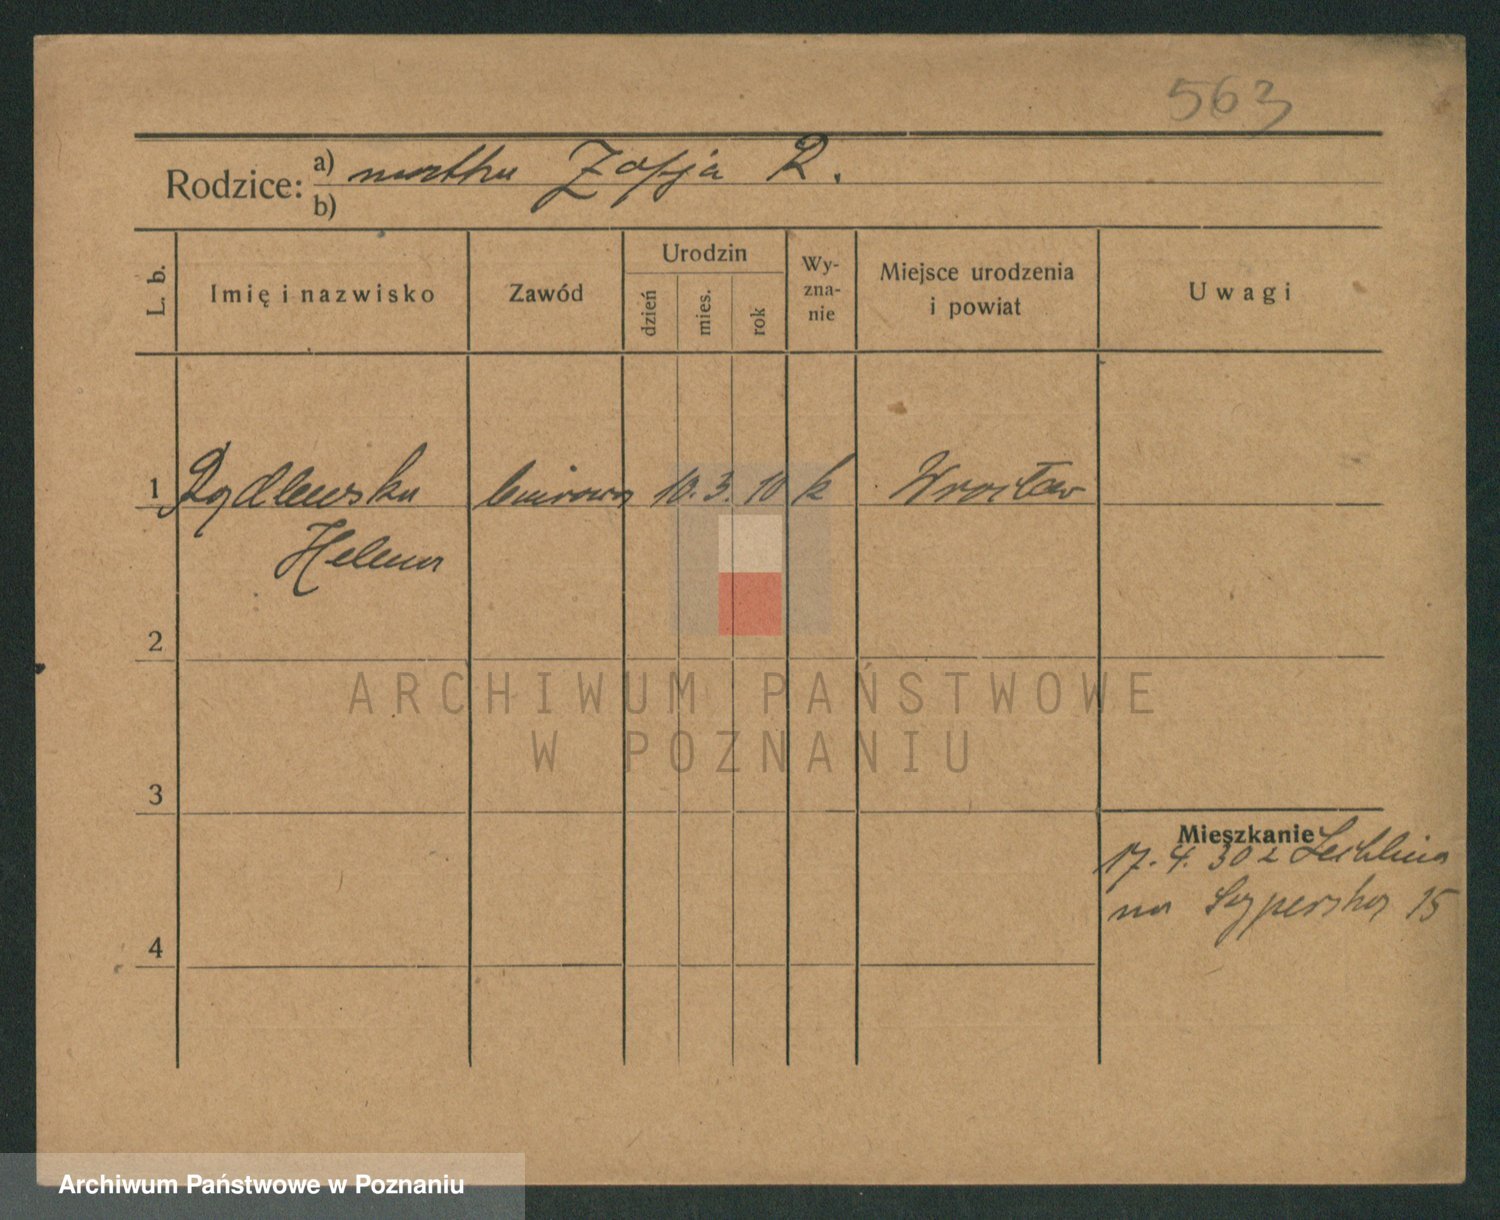 563
Rodzice: a) matka Zofja R.
b)
L. b. Imię i nazwisko Zawód Urodzin dzień mies. rok Wy-zna-nie Miejsce urodzenia i powiat Uwagi
1 Rydlewska biurowa 10. 3. 10 k Wrocław
Helena
2
ARCHIWUM PAŃSTWOWE
W POZNANIU
3
Mieszkanie
17. 4. 30 z Lechlina
na 15
4
Archiwum Państwowe w Poznaniu